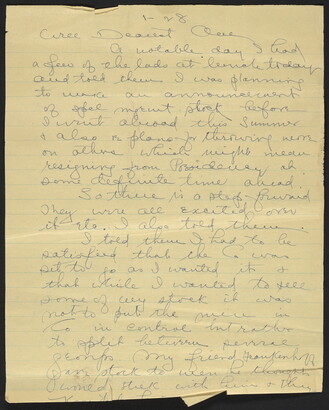 1-28
Dearest
A notable day. I had
a few of the lads at lunch today
and told them I was planning
to make an announcement
of mgmt stock before
I went abroad this Summer
& also plans for throwing more
on others which might mean
resigning from Presidency at
some definite time ahead.
So there is a step forward
They were all excited over
it etc. I also told them
I told them I had to be
satisfied that the Co was
set to go as I wanted it &
that while I wanted to sell
some of my stock it was
not to put the in
Co in control but rather
to split between several
groups. My friend
stock to when he thought
would stick with them & they